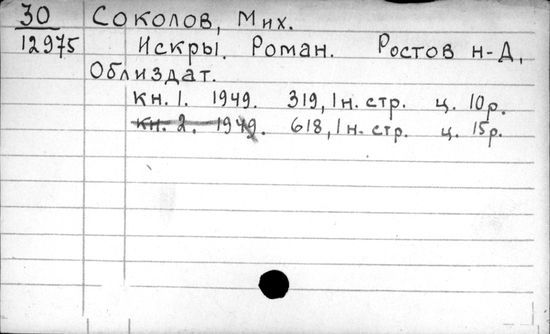 30 Соколов, Мих.
12975 Искры. Роман. Ростов н-Д,
Облиздат.
кн. 1. 1949. 319, 1 н. стр. ц. 10 р.
кн. 2. 1949. 618, 1 н. стр. ц. 15 р.